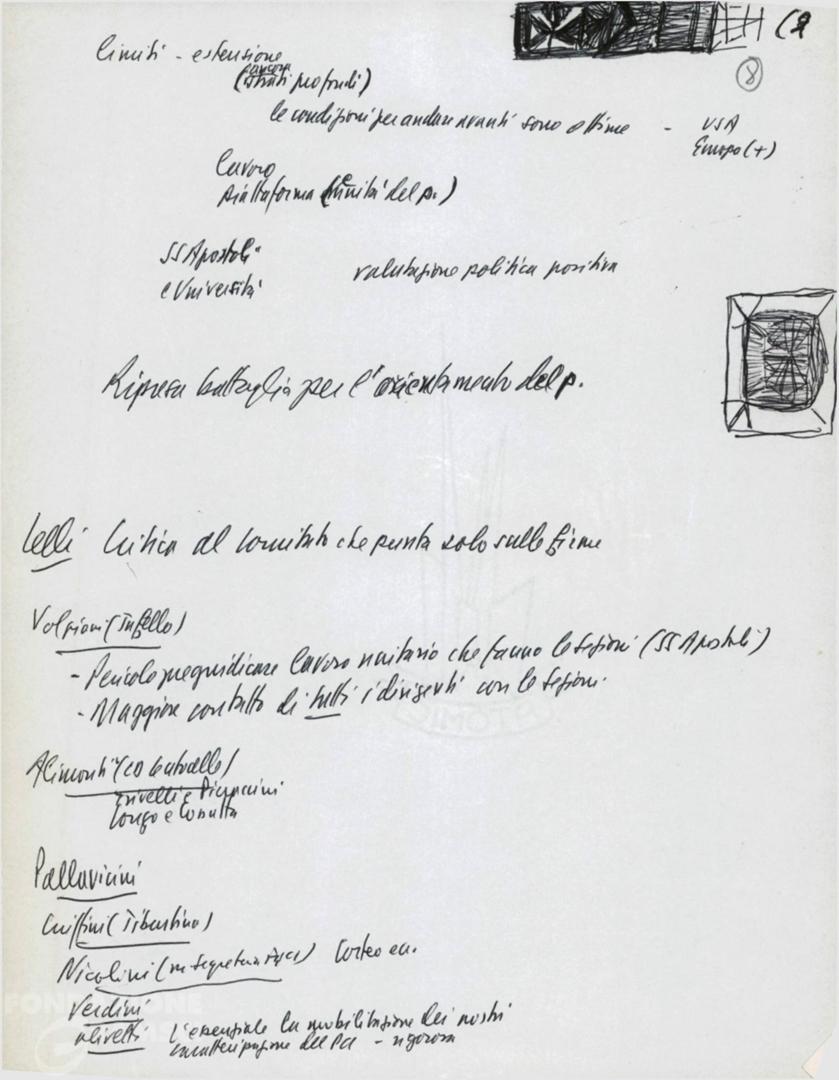 (2
8
limiti - estensione
(ancora
strati profondi)
le condizioni per andare avanti sono ottime - USA
Europa (+)
lavoro
piattaforma (unità del p.)
SS Apostoli
e Università
valutazione politica positiva
Ripresa battaglia per l'orientamento del p.
Lelli Critica al comitato che punta solo sulle firme
Volpioni (Tufello)
- Pericolo pregiudicare lavoro unitario che fanno le sezioni (SS Apostoli)
- Maggiore contatto di tutti i dirigenti con le sezioni.
Alimonti
Trivelli e
Longo e Consulta
Pallavicini
(Tiburtino)
Nicolini Corteo
Verdini
Olivetti l'essenziale la mobilitazione dei nostri
caratterizzazione del PCI - rigorosa
FONDAZIONE